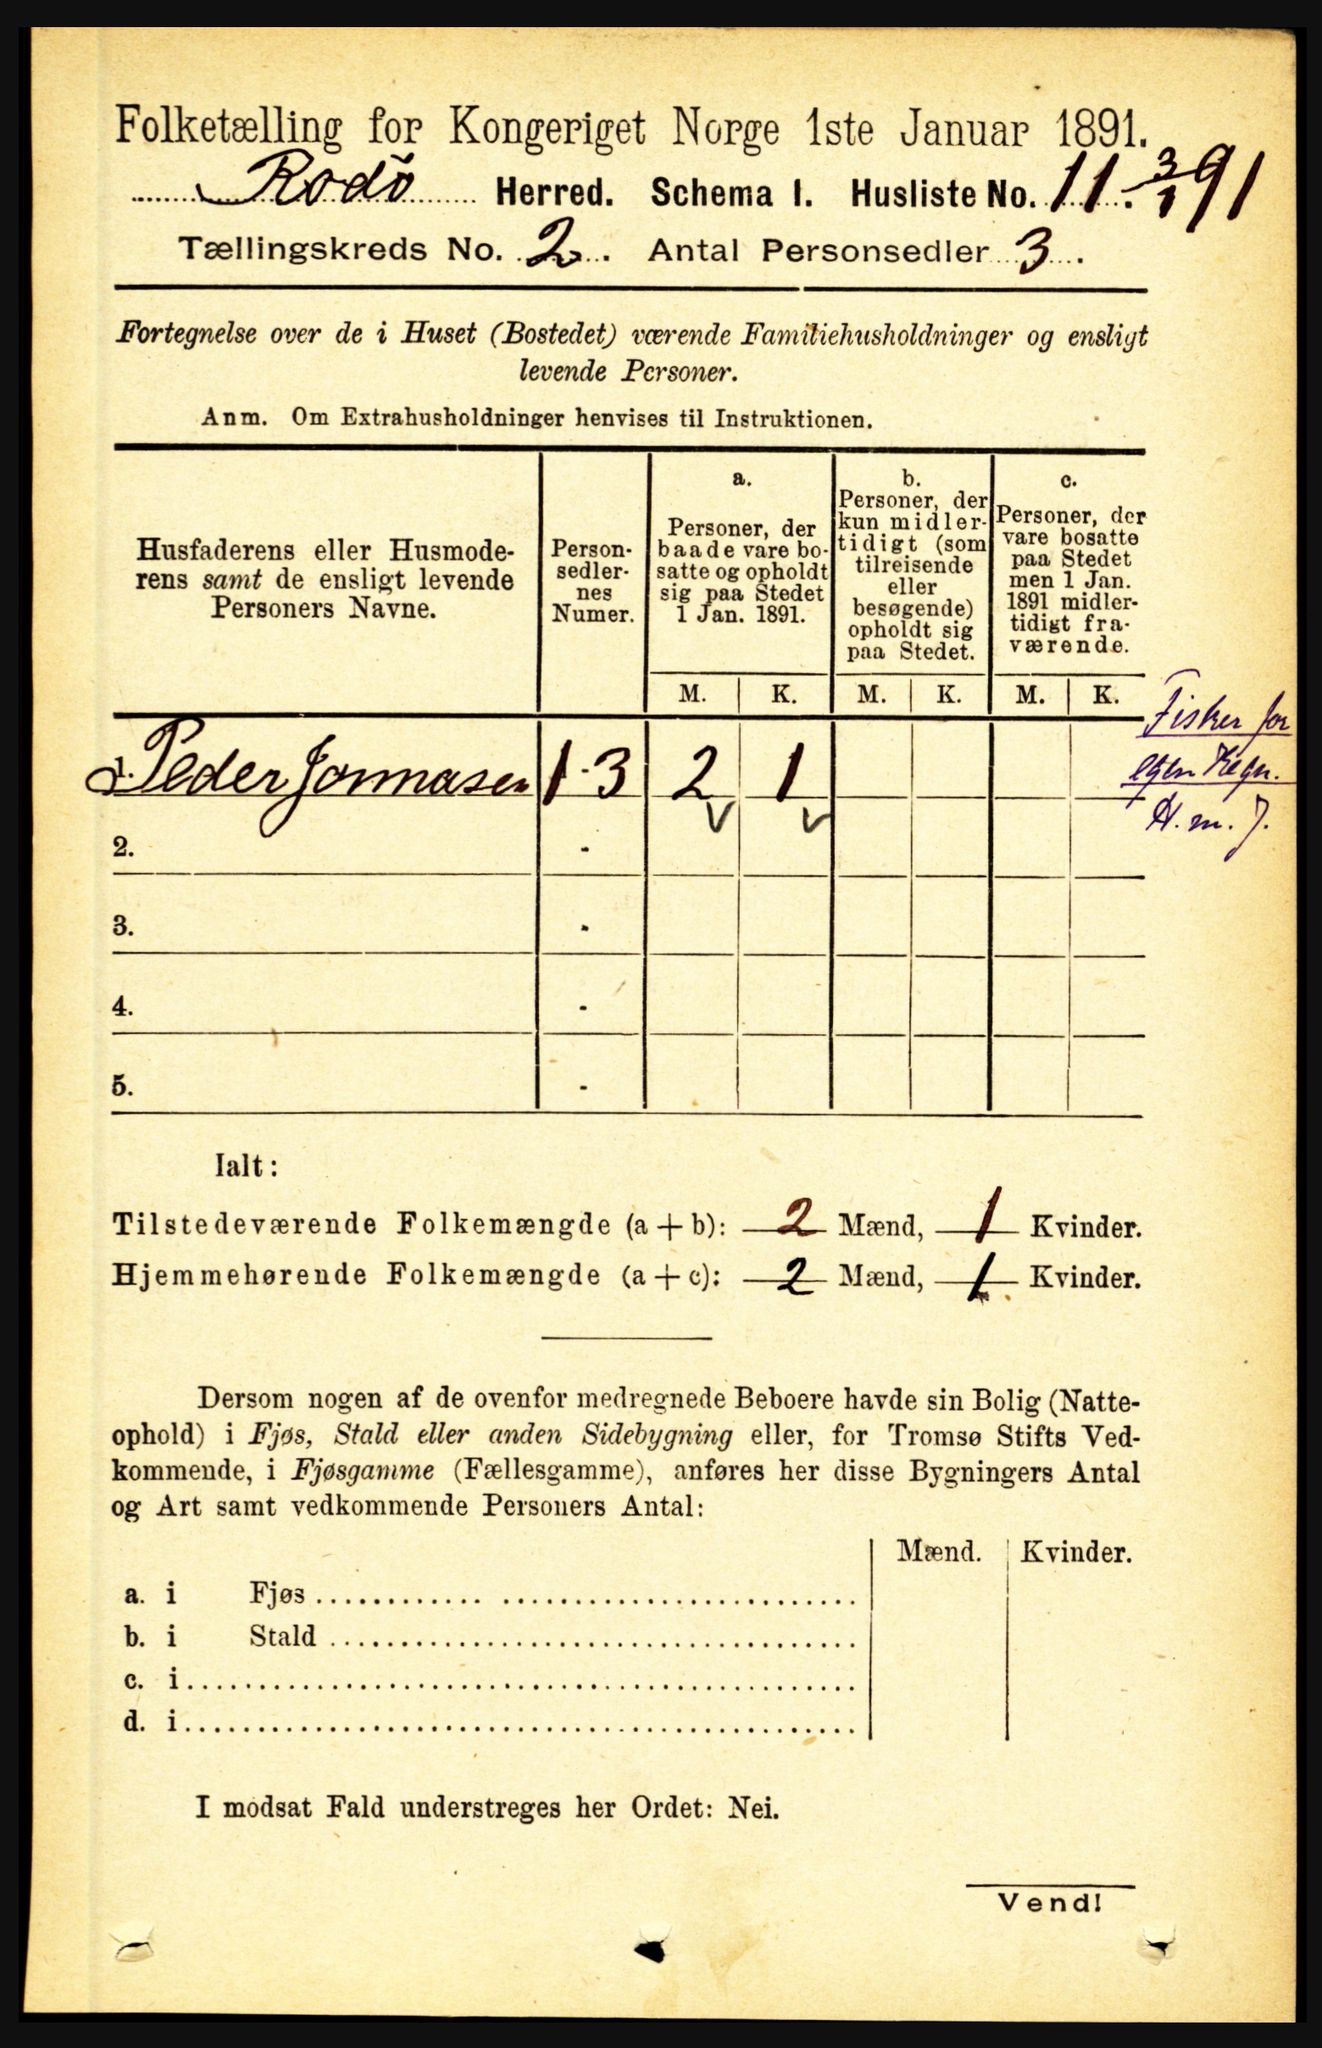 Folketælling for Kongeriget Norge 1ste Januar 1891.
Rodö Herred. Schema I. Husliste No. 11. 3/1 91
Tællingskreds No. 2. Antal Personsedler 3.
Fortegnelse over de i Huset (Bostedet) værende Familiehusholdninger og ensligt
levende Personer.
Anm. Om Extrahusholdninger henvises til Instruktionen.
Husfaderens eller Husmode-
rens samt de ensligt levende
Personers Navne.
Person-
sedler-
nes
Numer.
a.
Personer, der
baade vare bo-
satte og opholdt
sig paa Stedet
1 Jan. 1891.
b.
Personer, der
kun midler-
tidigt (som
tilreisende
eller
besøgende)
opholdt sig
paa Stedet.
c.
Personer, der
vare bosatte
paa Stedet
men 1 Jan.
1891 midler-
tidigt fra-
værende.
M. K. M. K. M. K.
Fisker for
egen Regn.
H. m. J.
1. Peder Jonnasen 1 - 3 2 1
2. -
3. -
4. -
5. -
Ialt:
Tilstedeværende Folkemængde (a + b): 2 Mænd, 1 Kvinder.
Hjemmehørende Folkemængde (a + c): 2 Mænd, 1 Kvinder.
Dersom nogen af de ovenfor medregnede Beboere havde sin Bolig (Natte-
ophold) i Fjøs, Stald eller anden Sidebygning eller, for Tromsø Stifts Ved-
kommende, i Fjøsgamme (Fællesgamme), anføres her disse Bygningers Antal
og Art samt vedkommende Personers Antal:
Mænd. Kvinder.
a. i Fjøs
b. i Stald
c. i
d. i
I modsat Fald understreges her Ordet: Nei.
Vend!